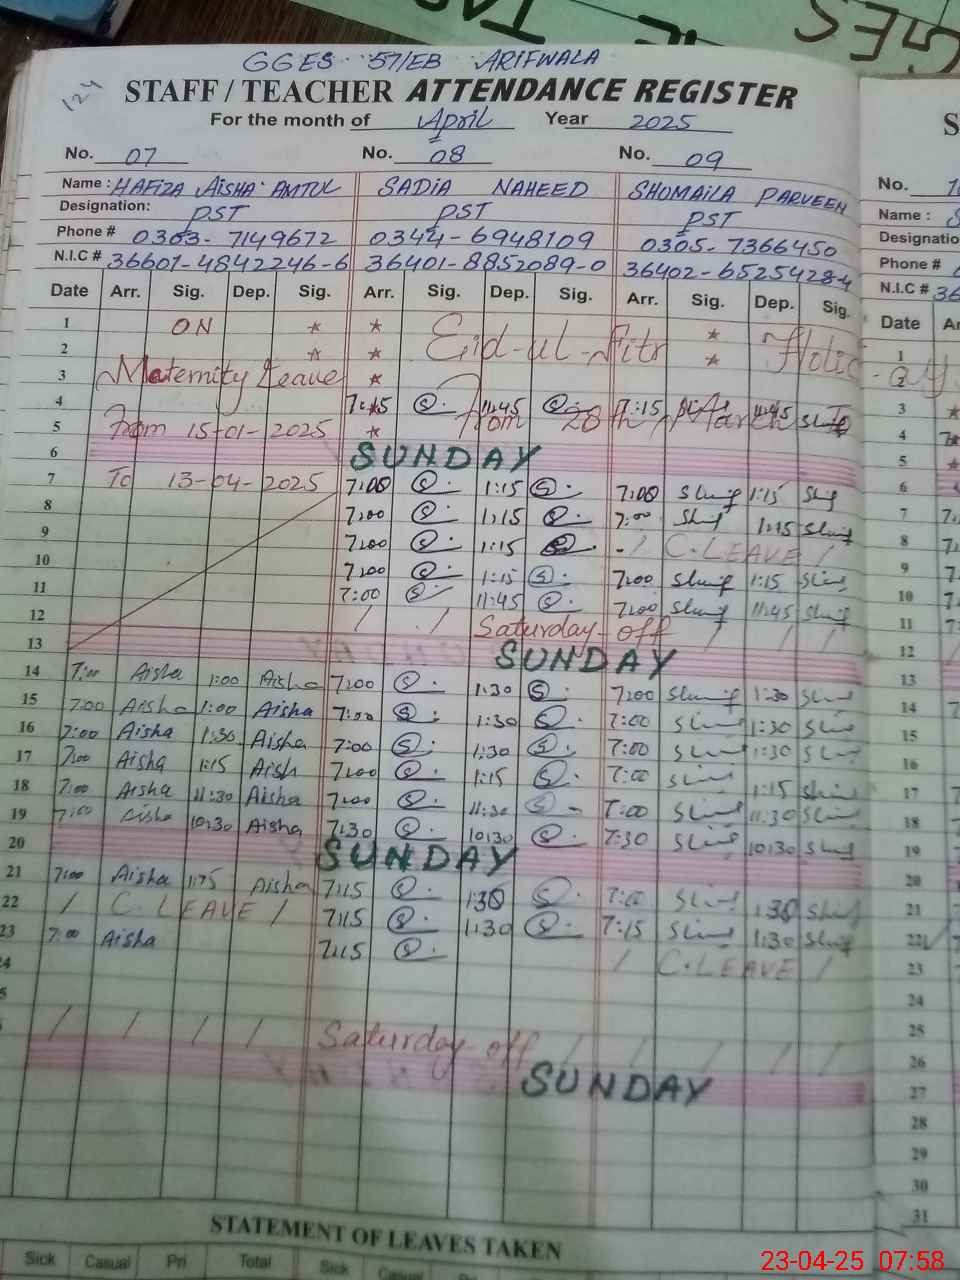 GES
TAB
124
GGES 57/EB ARIFWALA
STAFF / TEACHER ATTENDANCE REGISTER
For the month of April Year 2025
No. 07 No. 08 No. 09
Name : HAFIZA AISHA AMTUL SADIA NAHEED SHOMAILA PARVEEN
Designation: PST PST PST
Phone # 0303-7149672 0344-6948109 0305-7366450
N.I.C # 36601-4842246-6 36401-8852089-0 36402-6525428-4
Date Arr. Sig. Dep. Sig. Arr. Sig. Dep. Sig. Arr. Sig. Dep. Sig.
1 ON * * Eid-ul-Fitr * Holid-ay
2 * * *
3 Maternity Leave *
4 7:15 S 11:45 S 7:15 11:45
5 From 15-01-2025 * From 28th March To
6 SUNDAY
7 To 13-04-2025 7:00 S 1:15 S 7:00 1:15
8 7:00 S 1:15 S 7:00 1:15
9 7:00 S 1:15 S / C.LEAVE /
10 7:00 S 1:15 S 7:00 1:15
11 7:00 S 11:45 S 7:00 11:45
12 / / Saturday-off / / /
13 SUNDAY
14 7:00 Aisha 1:00 Aisha 7:00 S 1:30 S 7:00 1:30
15 7:00 Aisha 1:00 Aisha 7:00 S 1:30 S 7:00 1:30
16 7:00 Aisha 1:30 Aisha 7:00 S 1:30 S 7:00 1:30
17 7:00 Aisha 1:15 Aisha 7:00 S 1:15 S 7:00 1:15
18 7:00 Aisha 11:30 Aisha 7:00 S 11:30 S 7:00 11:30
19 7:00 Aisha 10:30 Aisha 7:30 S 10:30 S 7:30 10:30
20 SUNDAY
21 7:00 Aisha 1:15 Aisha 7:15 S 1:30 S 7:00 1:30
22 / C.LEAVE / 7:15 S 1:30 S 7:15 1:30
23 7:00 Aisha 7:15 S / C.LEAVE /
24
5
/ / / / Saturday-off / / / / /
SUNDAY
STATEMENT OF LEAVES TAKEN
Sick Casual Pri Total Sick Casual
S
No.
Name :
Designatio
Phone #
N.I.C # 36
Date
1
2
3
4
5
6
7
8
9
10
11
12
13
14
15
16
17
18
19
20
21
22
23
24
25
26
27
28
29
30
31
23-04-25 07:58